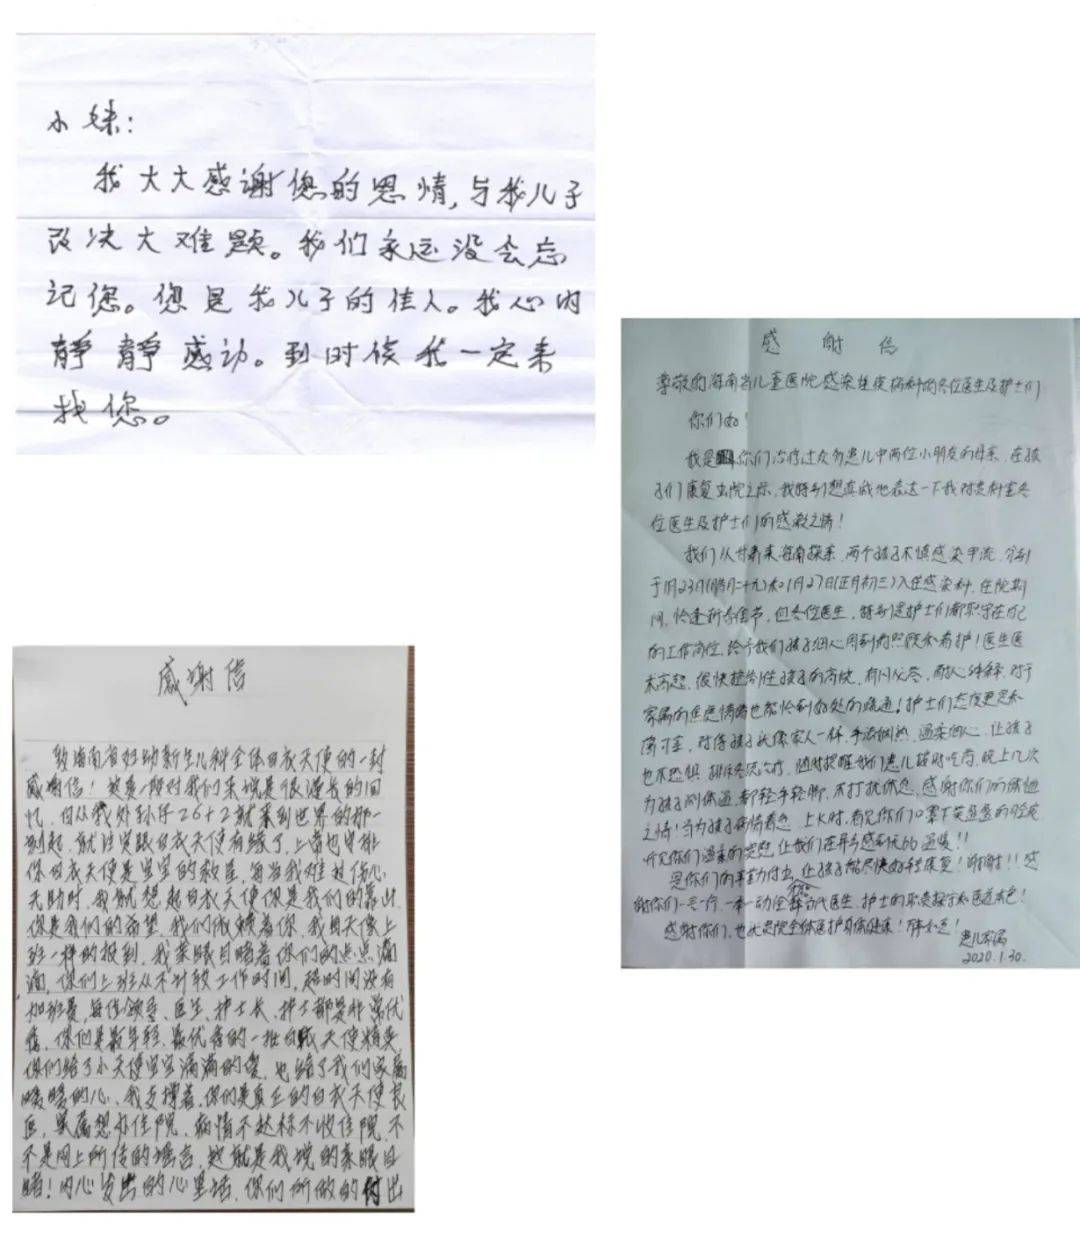 小妹：
我大大感谢您的恩情，与我儿子
改决大难题。我们永远没会忘
记您。您是我儿子的佳人。我心内
静静感动。到时候我一定来
找您。
感谢信
尊敬的海南省儿童医院感染性疾病科的各位医生及护士们
你们好！
我是你们治疗过众多患儿中两位小朋友的母亲，在孩
子们康复出院之际，我特别想真诚地表达一下我对贵科室各
位医生及护士们的感激之情！
我们从甘肃来海南探亲，两个孩子不慎感染甲流，分别
于1月23日(腊月二十九)和1月27日(正月初三)入住感染科，住院期
间，恰逢新春佳节，但各位医生，特别是护士们都职守在自己
的工作岗位，给予我们孩子细心周到的照顾和看护！医生医
术高超，很快控制住孩子的高烧，有问必答，耐心讲解，对于
家属的焦虑情绪也能恰到好处的疏通！护士们态度更是和
蔼可亲，对待孩子就像家人一样，手法娴熟，温柔细心，让孩子
也不恐惧、排斥各项治疗，随时提醒我们患儿按时吃药，晚上几次
为孩子测体温，都轻手轻脚，不打扰休息，感谢你们的体恤
之情！当为孩子病情着急上火时，看见你们口罩下笑盈盈的脸庞
听见你们温柔的安慰，让我们在异乡感到优66温暖！！
是你们的辛勤付出，让孩子能尽快好转康复！谢谢！！感
谢你们一言一行，一举一动诠释当代医生、护士的职责操守和医道本色！
感谢你们，也祝贵院全体医护身体健康！
患儿家属
2020.1.30.
感谢信
致海南省妇幼新生儿科全体白衣天使的一封
感谢信！这真一段对我们来说是很漫长的回
忆，自从我外孙仔26+2就来到世界的那一
刻起，就注定跟白衣天使有缘了，上苍也安排
你白衣天使是宝宝的救星，每当我难过伤心
无助时，我就想起白衣天使你是我们的靠山
你是我们的希望，我们依赖着你，我每天像上
班一样的报到，我亲眼目睹着你们的点点滴
滴，你们上班从不计较工作时间，超时间没有
加班费，每位领导、医生、护士长、护士都是非常优
秀，你们是最年轻、最优秀的一批白衣天使精英
你们给了小天使宝宝满满的爱，也给了我们家属
暖暖的心、我支撑着，你们是真正的白衣天使
家属想办住院，病情不达标不收住院，不
不是网上所传的谣言，这就是我说的亲眼目
睹！内心发出的心里话，你们所做的付出